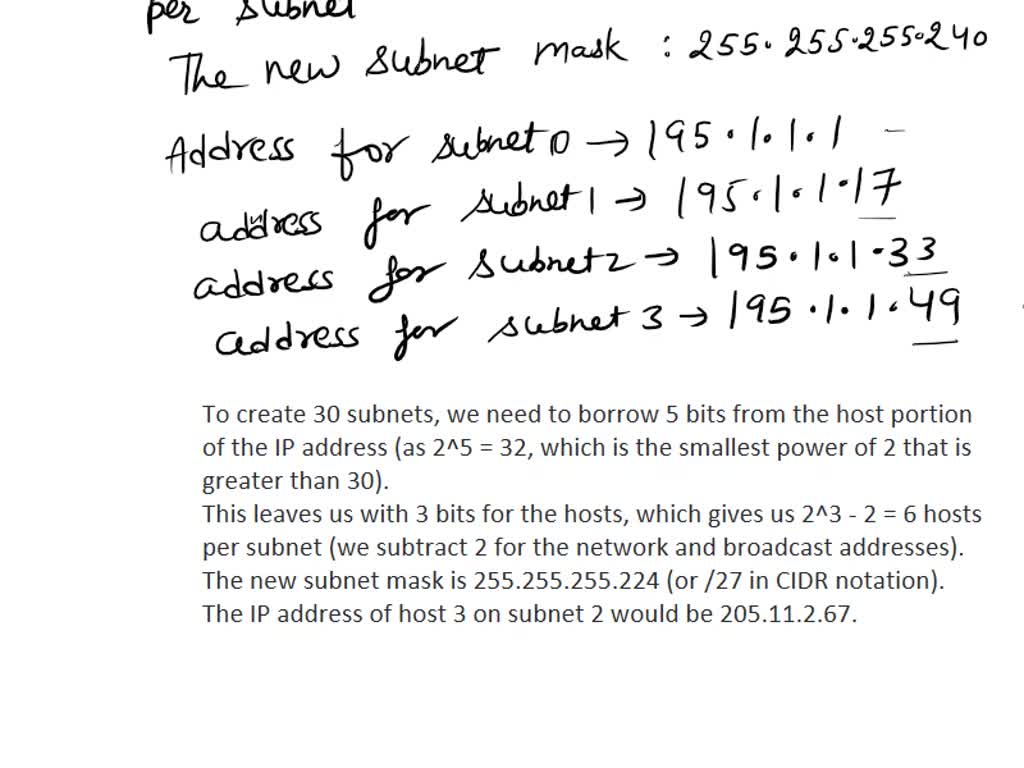 per subnet
The new subnet mask : 255.255.255.240
Address for subnet 0 → 195.1.1.1 –
address for subnet 1 → 195.1.1.17
address for subnet 2 → 195.1.1.33
address for subnet 3 → 195.1.1.49
To create 30 subnets, we need to borrow 5 bits from the host portion
of the IP address (as 2^5 = 32, which is the smallest power of 2 that is
greater than 30).
This leaves us with 3 bits for the hosts, which gives us 2^3 - 2 = 6 hosts
per subnet (we subtract 2 for the network and broadcast addresses).
The new subnet mask is 255.255.255.224 (or /27 in CIDR notation).
The IP address of host 3 on subnet 2 would be 205.11.2.67.